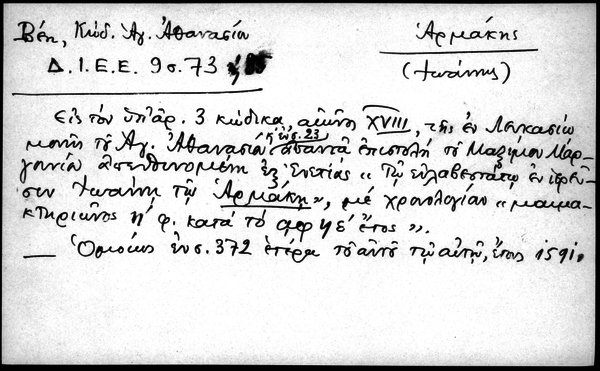 Βέη, Κώδ. Ἁγ. Ἀθανασίου
Ἀρμάκης
Δ.Ι.Ε.Ε. 9 σ. 73
(Ἰωάννης)
Εἰς τὸν ὑπ' ἀρ. 3 κώδικα, αἰῶνος XVIII, τῆς ἐν Λευκασίῳ
μονῆς τοῦ Ἁγ. Ἀθανασίου, ἐν σ. 23 ἀπαντᾷ ἐπιστολὴ τοῦ Μαξίμου Μαρ-
γουνίου ἀπευθυνομένη ἐξ Ἑνετίας «Τῷ εὐλαβεστάτῳ ἐν ἱερεῦ-
σιν Ἰωάννῃ τῷ Ἀρμάκῃ», μὲ χρονολογίαν «μαιμα-
κτηριῶνος ηʹ φ. κατὰ τὸ αφϟεʹ ἔτος».
— Ὁμοίως ἐν σ. 372 ἑτέρα τοῦ αὐτοῦ τῷ αὐτῷ, ἔτους 1591.